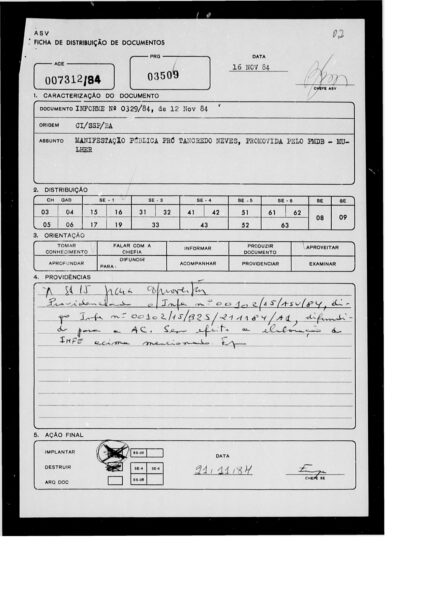 ASV
FICHA DE DISTRIBUIÇÃO DE DOCUMENTOS
02
ACE
007312/84
PRG
03509
DATA
16 NOV 84
CHEFE ASV
1. CARACTERIZAÇÃO DO DOCUMENTO
DOCUMENTO INFORME Nº 0329/84, de 12 Nov 84
ORIGEM CI/SSP/BA
ASSUNTO MANIFESTAÇÃO PÚBLICA PRÓ TANCREDO NEVES, PROMOVIDA PELO PMDB - MU-
LHER
2. DISTRIBUIÇÃO
CH GAB SE - 1 SE - 3 SE - 4 SE - 5 SE - 6 SE SE
03 04 15 16 31 32 41 42 51 61 62 08 09
05 06 17 19 33 43 52 63
3. ORIENTAÇÃO
TOMAR CONHECIMENTO FALAR COM A CHEFIA INFORMAR PRODUZIR DOCUMENTO APROVEITAR
APROFUNDAR DIFUNDIR PARA: ACOMPANHAR PROVIDENCIAR EXAMINAR
4. PROVIDÊNCIAS
A SE 15 para
Providenciado o Infe nº 00102/15/ASV/84, di-
go Infe nº 00102/15/ /211184/A1, difundi-
do para a AC. Sem efeito a elaboração do
INFE acima mencionado.
5. AÇÃO FINAL
IMPLANTAR
DESTRUIR SE-4 SE-4
ARQ DOC
DATA
21/11/84
CHEFE SE